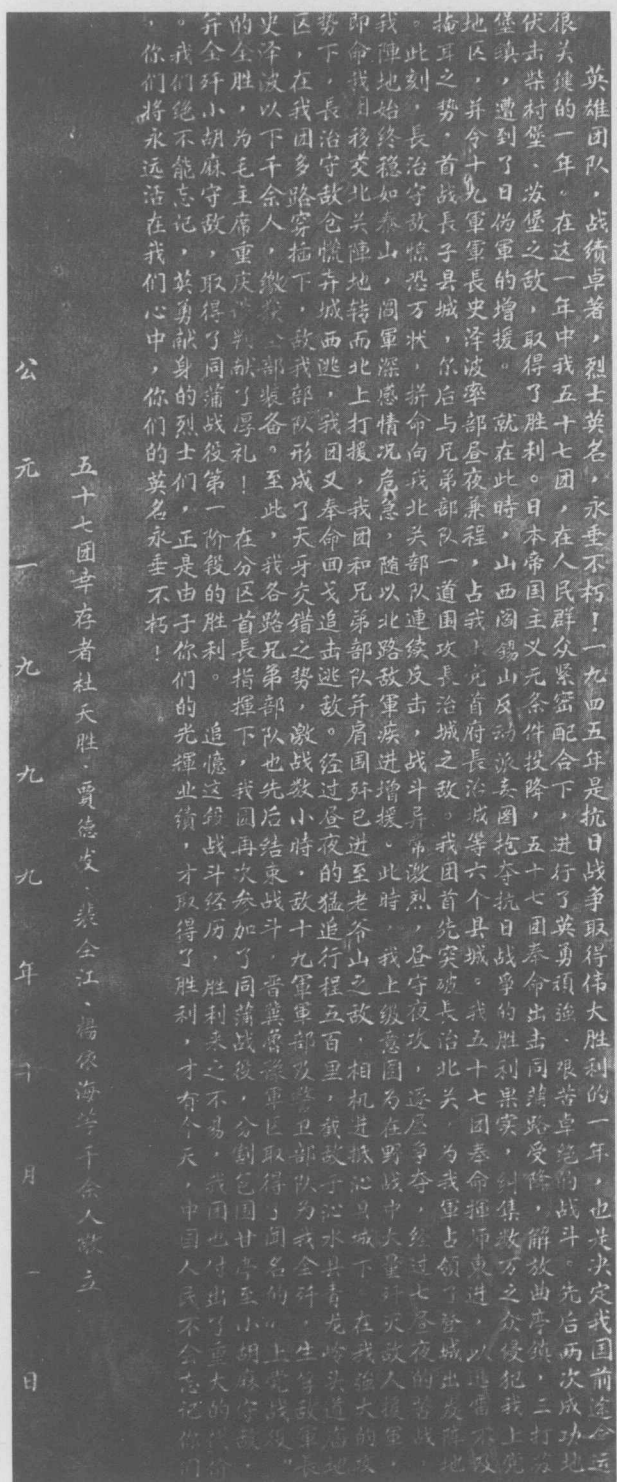 英雄团队，战绩卓著，烈士英名，永垂不朽！一九四五年是抗日战争取得伟大胜利的一年，也是决定我国前途命运
很关键的一年。在这一年中我五十七团，在人民群众紧密配合下，进行了英勇顽强、艰苦卓绝的战斗。先后两次成功地
伏击柴村堡、苏堡之敌，取得了胜利。日本帝国主义无条件投降，五十七团奉命出击同蒲路受降，解放曲亭镇，二打苏
堡镇，遭到了日伪軍的增援。 就在此時，山西阎锡山反动派妄圖抢夺抗日战爭的胜利果实，纠集数万之众侵犯我上党
地区，并令十九軍軍長史泽波率部昼夜兼程，占我上党首府長治城等六个县城。我五十七团奉命揮师東进，以迅雷不及
掩耳之势，首战長子县城，尔后与兄弟部队一道围攻長治城之敌。我团首先突破長治北关，为我軍占领了登城出发阵地
。此刻，長治守敌惊恐万状，拼命向我北关部队連续反击，战斗异常激烈，昼守夜攻，逐屋争夺，经过七昼夜的苦战，
我陣地始终稳如泰山，阎軍深感情况危急，随以北路敌軍疾进增援。此時，我上级意图为在野战中大量歼灭敌人援軍，
即命我团移交北关陣地转而北上打援，我团和兄弟部队并肩围歼已进至老爷山之敌，相机进抵沁县城下。在我強大的攻
势下，長治守敌仓慌弃城西逃，我团又奉命回戈追击逃敌。经过昼夜的猛追行程五百里，截敌于沁水县青龙岭头道庙地
区，在我团多路穿插下，敌我部队形成了犬牙交错之势，激战数小時，敌十九軍軍部及警卫部队为我全歼，生俘敌軍長
史泽波以下千余人，缴获全部装备。至此，我各路兄弟部队也先后结束战斗，晋冀鲁豫軍区取得了闻名的“上党战役”
的全胜，为毛主席重庆谈判献了厚礼！ 在分区首長指揮下，我团再次参加了同蒲战役，分割包围甘亭至小胡麻守敌，
并全歼小胡麻守敌，取得了同蒲战役第一阶段的胜利。 追憶这段战斗经历，胜利来之不易，我团也付出了重大的代价
。我们绝不能忘记，英勇献身的烈士们，正是由于你们的光輝业绩，才取得了胜利，才有今天，中国人民不会忘记你们
，你们将永远活在我们心中，你们的英名永垂不朽！
五十七团幸存者杜天胜、賈德发、裴全江、楊俅海等千余人敬立
公元一九九九年十月一日